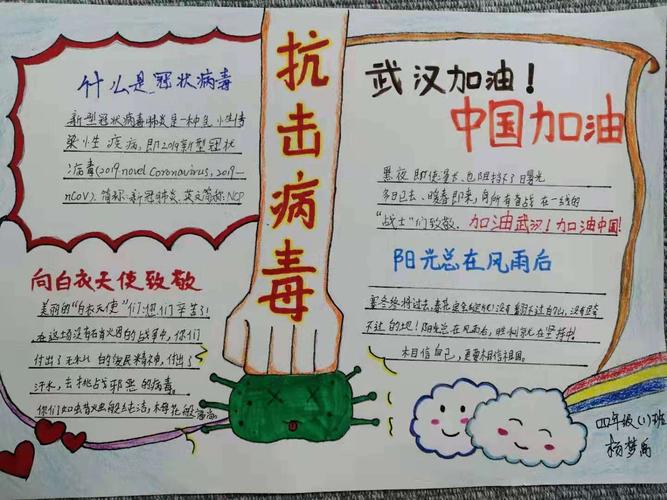 抗击病毒
什么是冠状病毒
新型冠状病毒肺炎是一种急性传
染性疾病,即2019新型冠状
病毒(2019.novel Coronavirus,2019-
nCoV).简称:新冠肺炎、英文简称NCP
向白衣天使致敬
美丽的"白衣天使"们:您们辛苦了!
在这场没有硝火的战争中,你们
付出了无 的 精神,付出了
汗水,去挑战邪恶的病毒。
你们如 般 洁,梅花般
武汉加油!
中国加油
黑夜即使漫长、也阻挡不了曙光
冬日已去、暖春即来,向所有奋战在一线的
"战士"们致敬。加油武汉!加油中国!
阳光总在风雨后
寒冬终将过去,春花 没有翻不过的山,没有
不过的 !阳光总在风雨后,胜利就在坚持中
相信自己,更要相信祖国。
四年级(1)班
杨梦